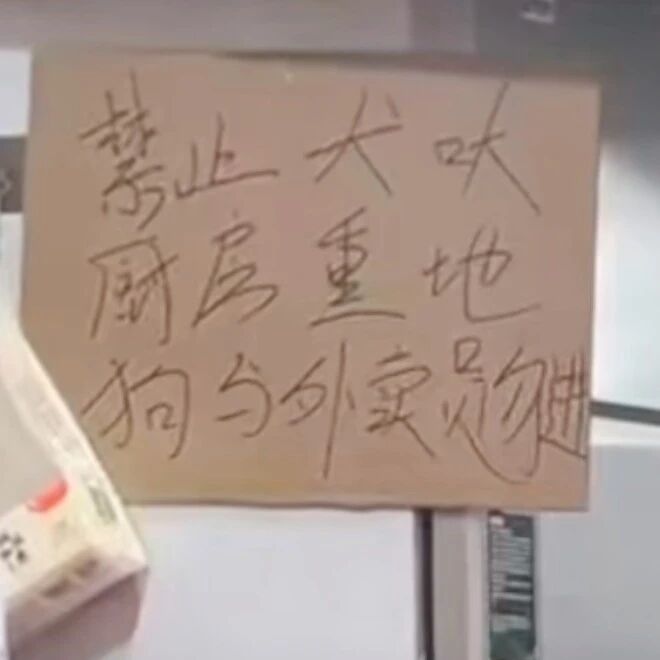 禁止犬吠
厨房重地
狗与外卖员勿进